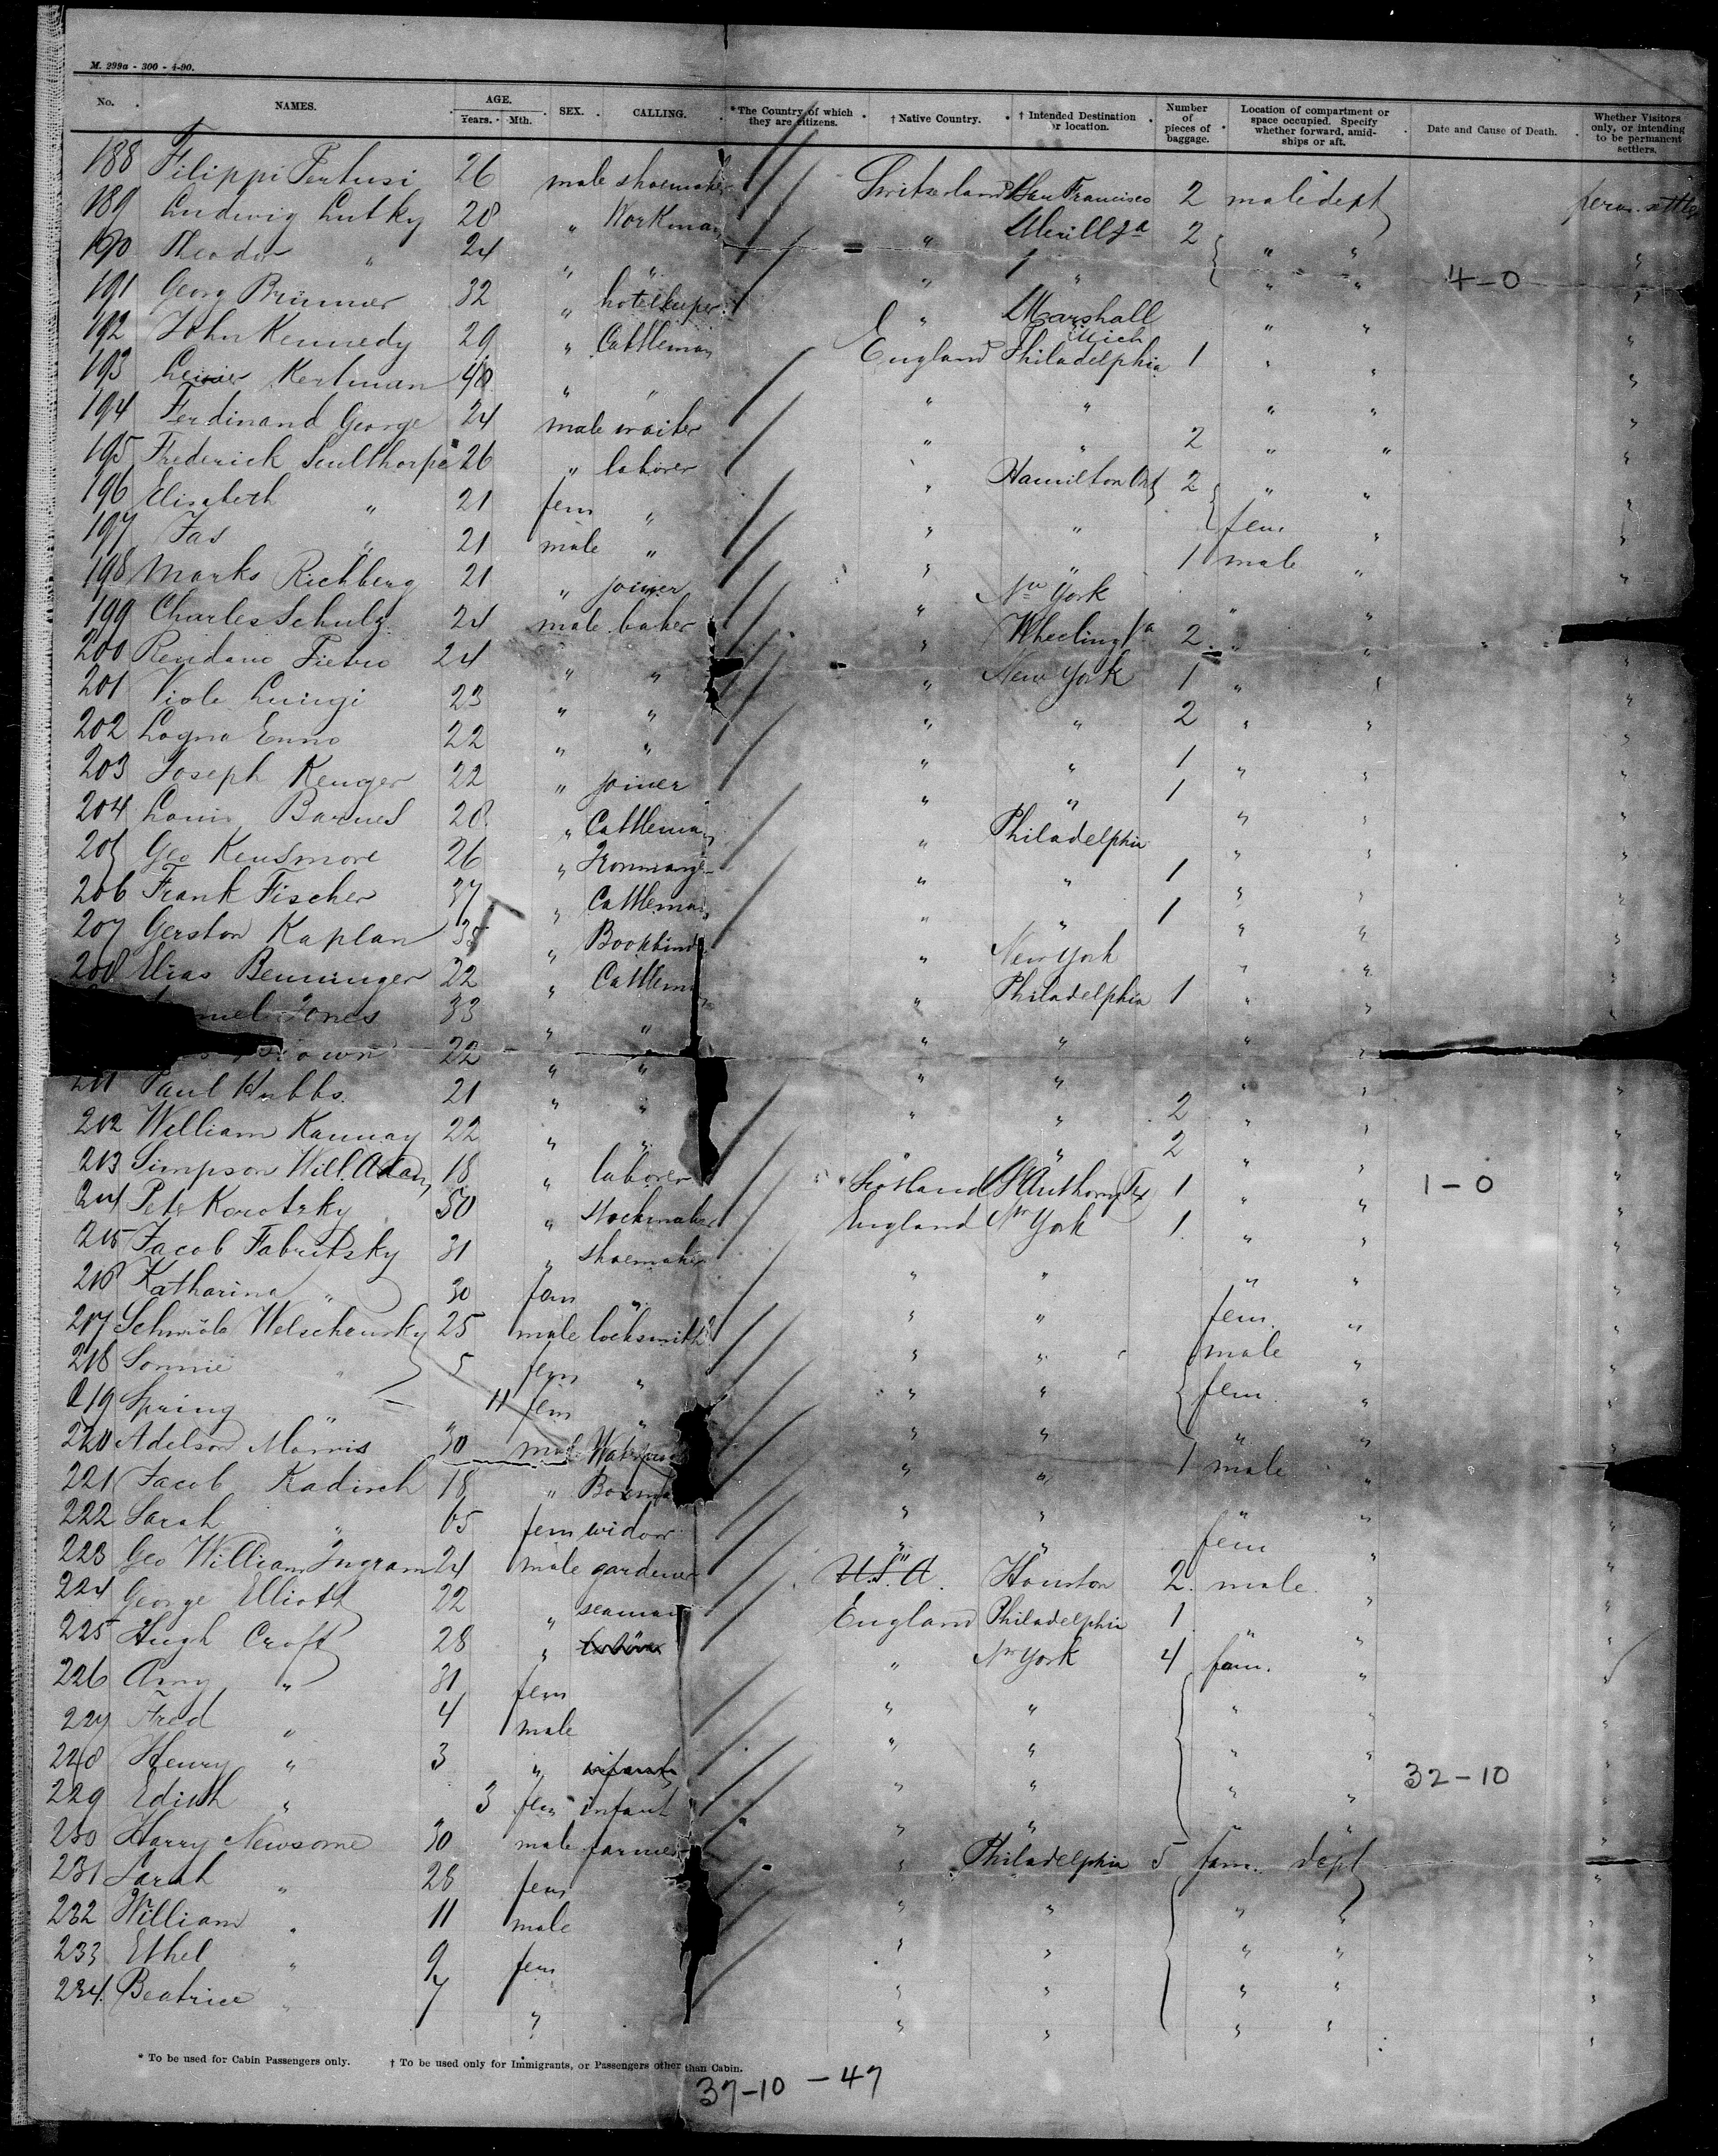 M. 299a - 300 - 4-90.
No. NAMES. AGE. Years. Mth. SEX. CALLING. *The Country of which they are citizens. † Native Country. † Intended Destination or location. Number of pieces of baggage. Location of compartment or space occupied. Specify whether forward, amidships or aft. Date and Cause of Death. Whether Visitors only, or intending to be permanent settlers.
188 Filippi 26 male shoemaker Switzerland San Francisco 2 male dept
189 Ludwig Lutky 28 " Workman " 2 " "
190 Theodor " 24 " " " " " "
4-0
191 Georg Brunner 32 " hotelkeeper " Marshall Mich " "
192 John Kennedy 29 " Cattleman England Philadelphia 1 " "
193 Kertman 40 " " " " " "
194 Ferdinand George 24 male waiter " " 2 " "
195 Frederick Sculthorpe 26 " laborer " Hamilton Ont 2 " "
196 Elisabeth " 21 fem " " " fem "
197 Jas " 21 male " " " 1 male "
198 Marks Richberg 21 " joiner " New York " "
199 Charles Schulz 24 male baker " Wheeling Va 2 " "
200 Rendano Pietro 24 " " " New York 1 " "
201 Viole Luigi 23 " " " " 2 " "
202 Logna Enno 22 " " " " 1 " "
203 Joseph Kenger 22 " joiner " " 1 " "
204 Louis Barnes 28 " Cattleman " Philadelphia " "
205 Geo Kensmore 26 " " " 1 " "
206 Frank Fischer 37 " Cattleman " " 1 " "
207 Gerston Kaplan 35 " Bookbind " New York " "
208 Elias Benninger 22 " Cattleman " Philadelphia 1 " "
muel Jones 33 " " " " " "
own 22 " " " " " "
211 Paul Hubbs. 21 " " " " 2 " "
212 William Kannay 22 " " " " 2 " "
213 Simpson Will. Adam 18 " laborer Scotland St Anthony 1 " "
1-0
214 Pete Korotzky 50 " Stockmaker England New York 1 " "
215 Jacob Fabritsky 31 " shoemaker " " " "
216 Katharina " 30 fem " " " fem. "
217 Schmöle Welschansky 25 male locksmith " " male "
218 Sonnie " 5 fem " " " fem "
219 Spring " 11 fem " " " " "
220 Adelson Morris 30 male " " 1 male "
221 Jacob Kadisch 18 " " " "
222 Sarah " 65 fem widow " " fem "
223 Geo William Ingram 24 male gardener U.S.A. Houston 2 male "
224 George Elliott 22 " seaman England Philadelphia 1 " "
225 Hugh Croft 28 " " New York 4 fam. "
226 Amy " 31 fem " " " "
227 Fred " 4 male " " " "
228 Henry " 3 " infant " " " "
32-10
229 Edith " 3 fem infant " " "
230 Harry Newsome 30 male farmer " Philadelphia 5 fam. dept
231 Sarah " 28 fem " " " "
232 William " 11 male " " " "
233 Ethel " 9 fem " " " "
234. Beatrice " 7 " " " " "
* To be used for Cabin Passengers only. † To be used only for Immigrants, or Passengers other than Cabin.
37-10 - 47